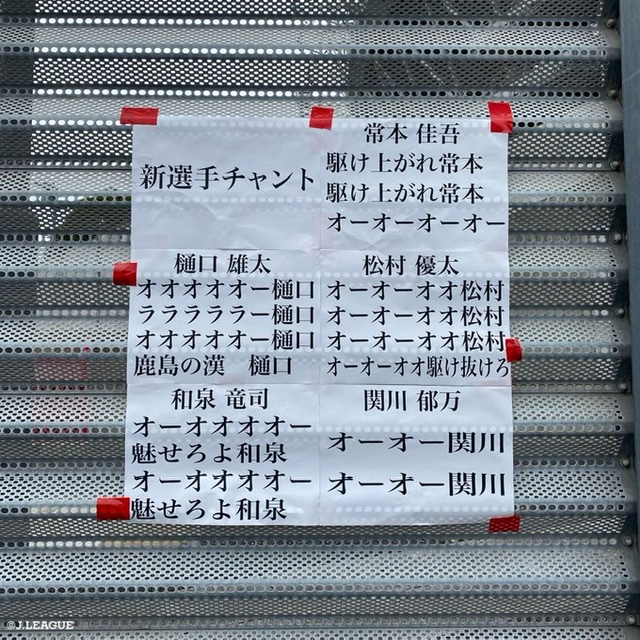 新選手チャント
常本 佳吾
駆け上がれ常本
駆け上がれ常本
オーオーオーオー
樋口 雄太
オオオオオー樋口
ララララララー樋口
オオオオオー樋口
鹿島の漢 樋口
松村 優太
オーオーオオ松村
オーオーオオ松村
オーオーオオ松村
オーオーオオ駆け抜けろ
和泉 竜司
オーオオオオー
魅せろよ和泉
オーオオオオー
魅せろよ和泉
関川 郁万
オーオー関川
オーオー関川
@J.LEAGUE